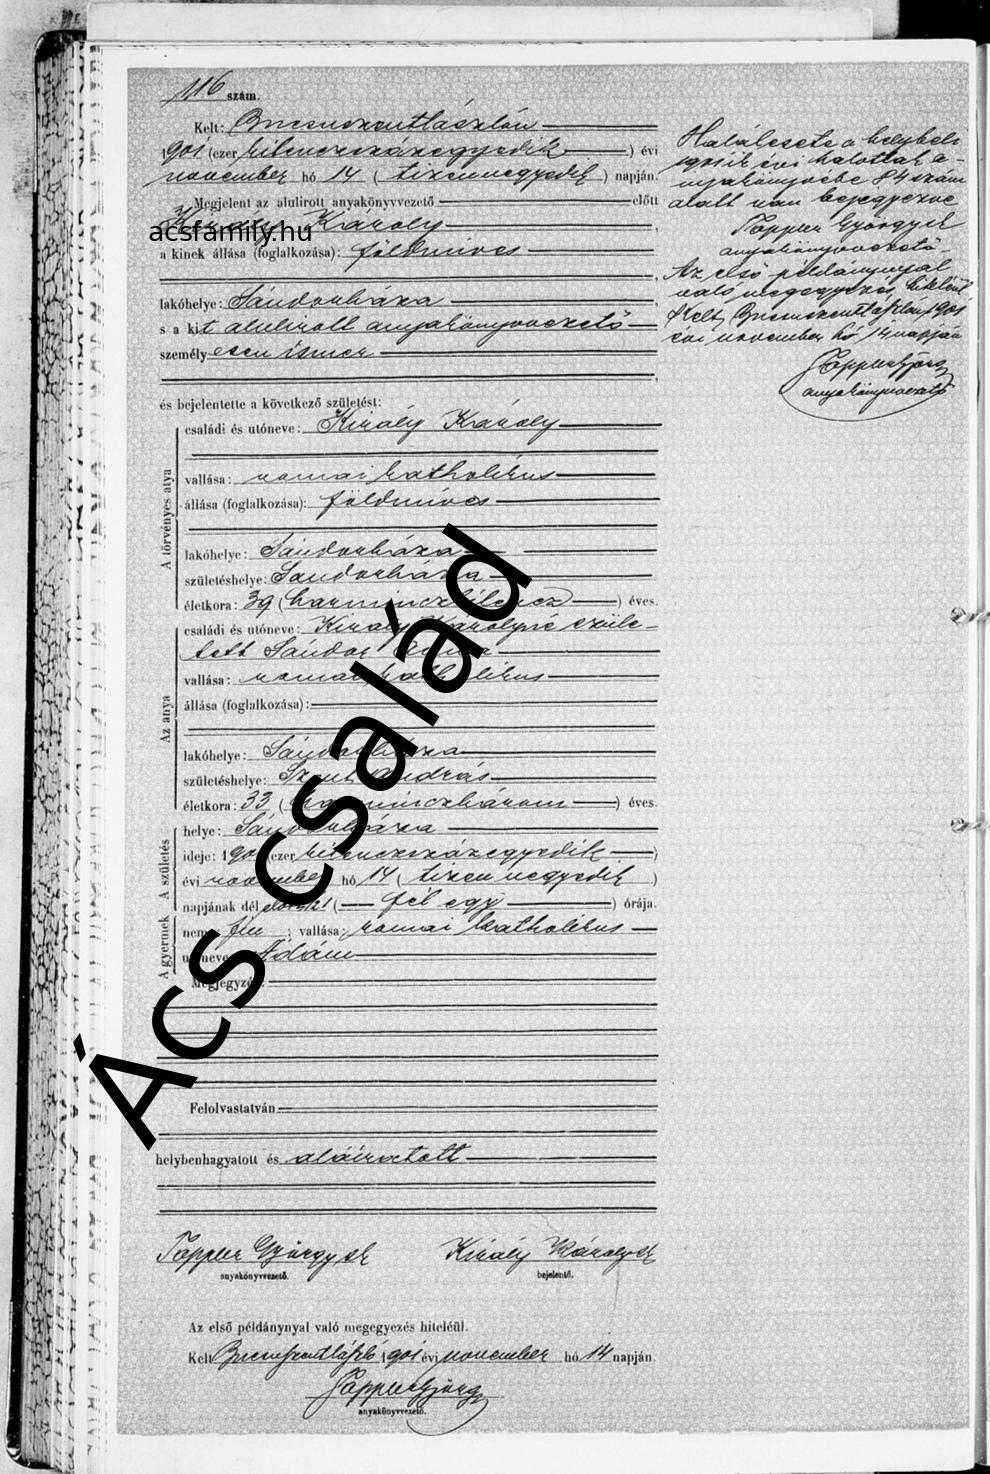 116 szám.
Kelt: Bucsuszentlászlón
1901 (ezer kilenczszázegyedik) évi
november hó 14 (tizennegyedik) napján.
Megjelent az alulirott anyakönyvvezető előtt
Király Károly,
acsfamily.hu
a kinek állása (foglalkozása): földmives
lakóhelye: Sándorháza
s a kit alulirott anyakönyvvezető
személyesen ismer
és bejelentette a következő születést:
A törvényes atya
családi és utóneve: Király Károly
vallása: romai katholikus
állása (foglalkozása): földmives
lakóhelye: Sándorháza
születéshelye: Sandorháza
életkora: 39 (harminczkilencz) éves.
Az anya
családi és utóneve: Király Károlyné szüle-
tett Sandor
vallása: romai katholikus
állása (foglalkozása):
lakóhelye: Sándorháza
születéshelye: Szent András
életkora: 33 (harminczhárom) éves.
A születés
helye: Sándorháza
ideje: 1901 (ezer kilenczszázegyedik)
évi november hó 14 (tizennegyedik)
napjának dél előtti ½1 (fél egy) órája.
A gyermek
neme: fiu; vallása: romai katholikus
utóneve: Ádám
Megjegyzés:
Felolvastatván
helybenhagyatott és aláiratott
Toppler György sk
anyakönyvvezető.
Király Károly sk
bejelentő.
Az első példánynyal való megegyezés hiteléül.
Kelt Bucsuszentlászló 1901 évi november hó 14 napján.
Toppler György
anyakönyvvezető.
Halálesete a helybeli
évi halottak a-
nyakönyvébe 84 szám
alatt van bejegyezve
Toppler György sk
anyakönyvvezető
Az első példánynyal
való megegyezés hiteléül
Kelt, Bucsuszentlászlón 1901
évi november hó 14 napján
Toppler György
anyakönyvvezető
Ács család